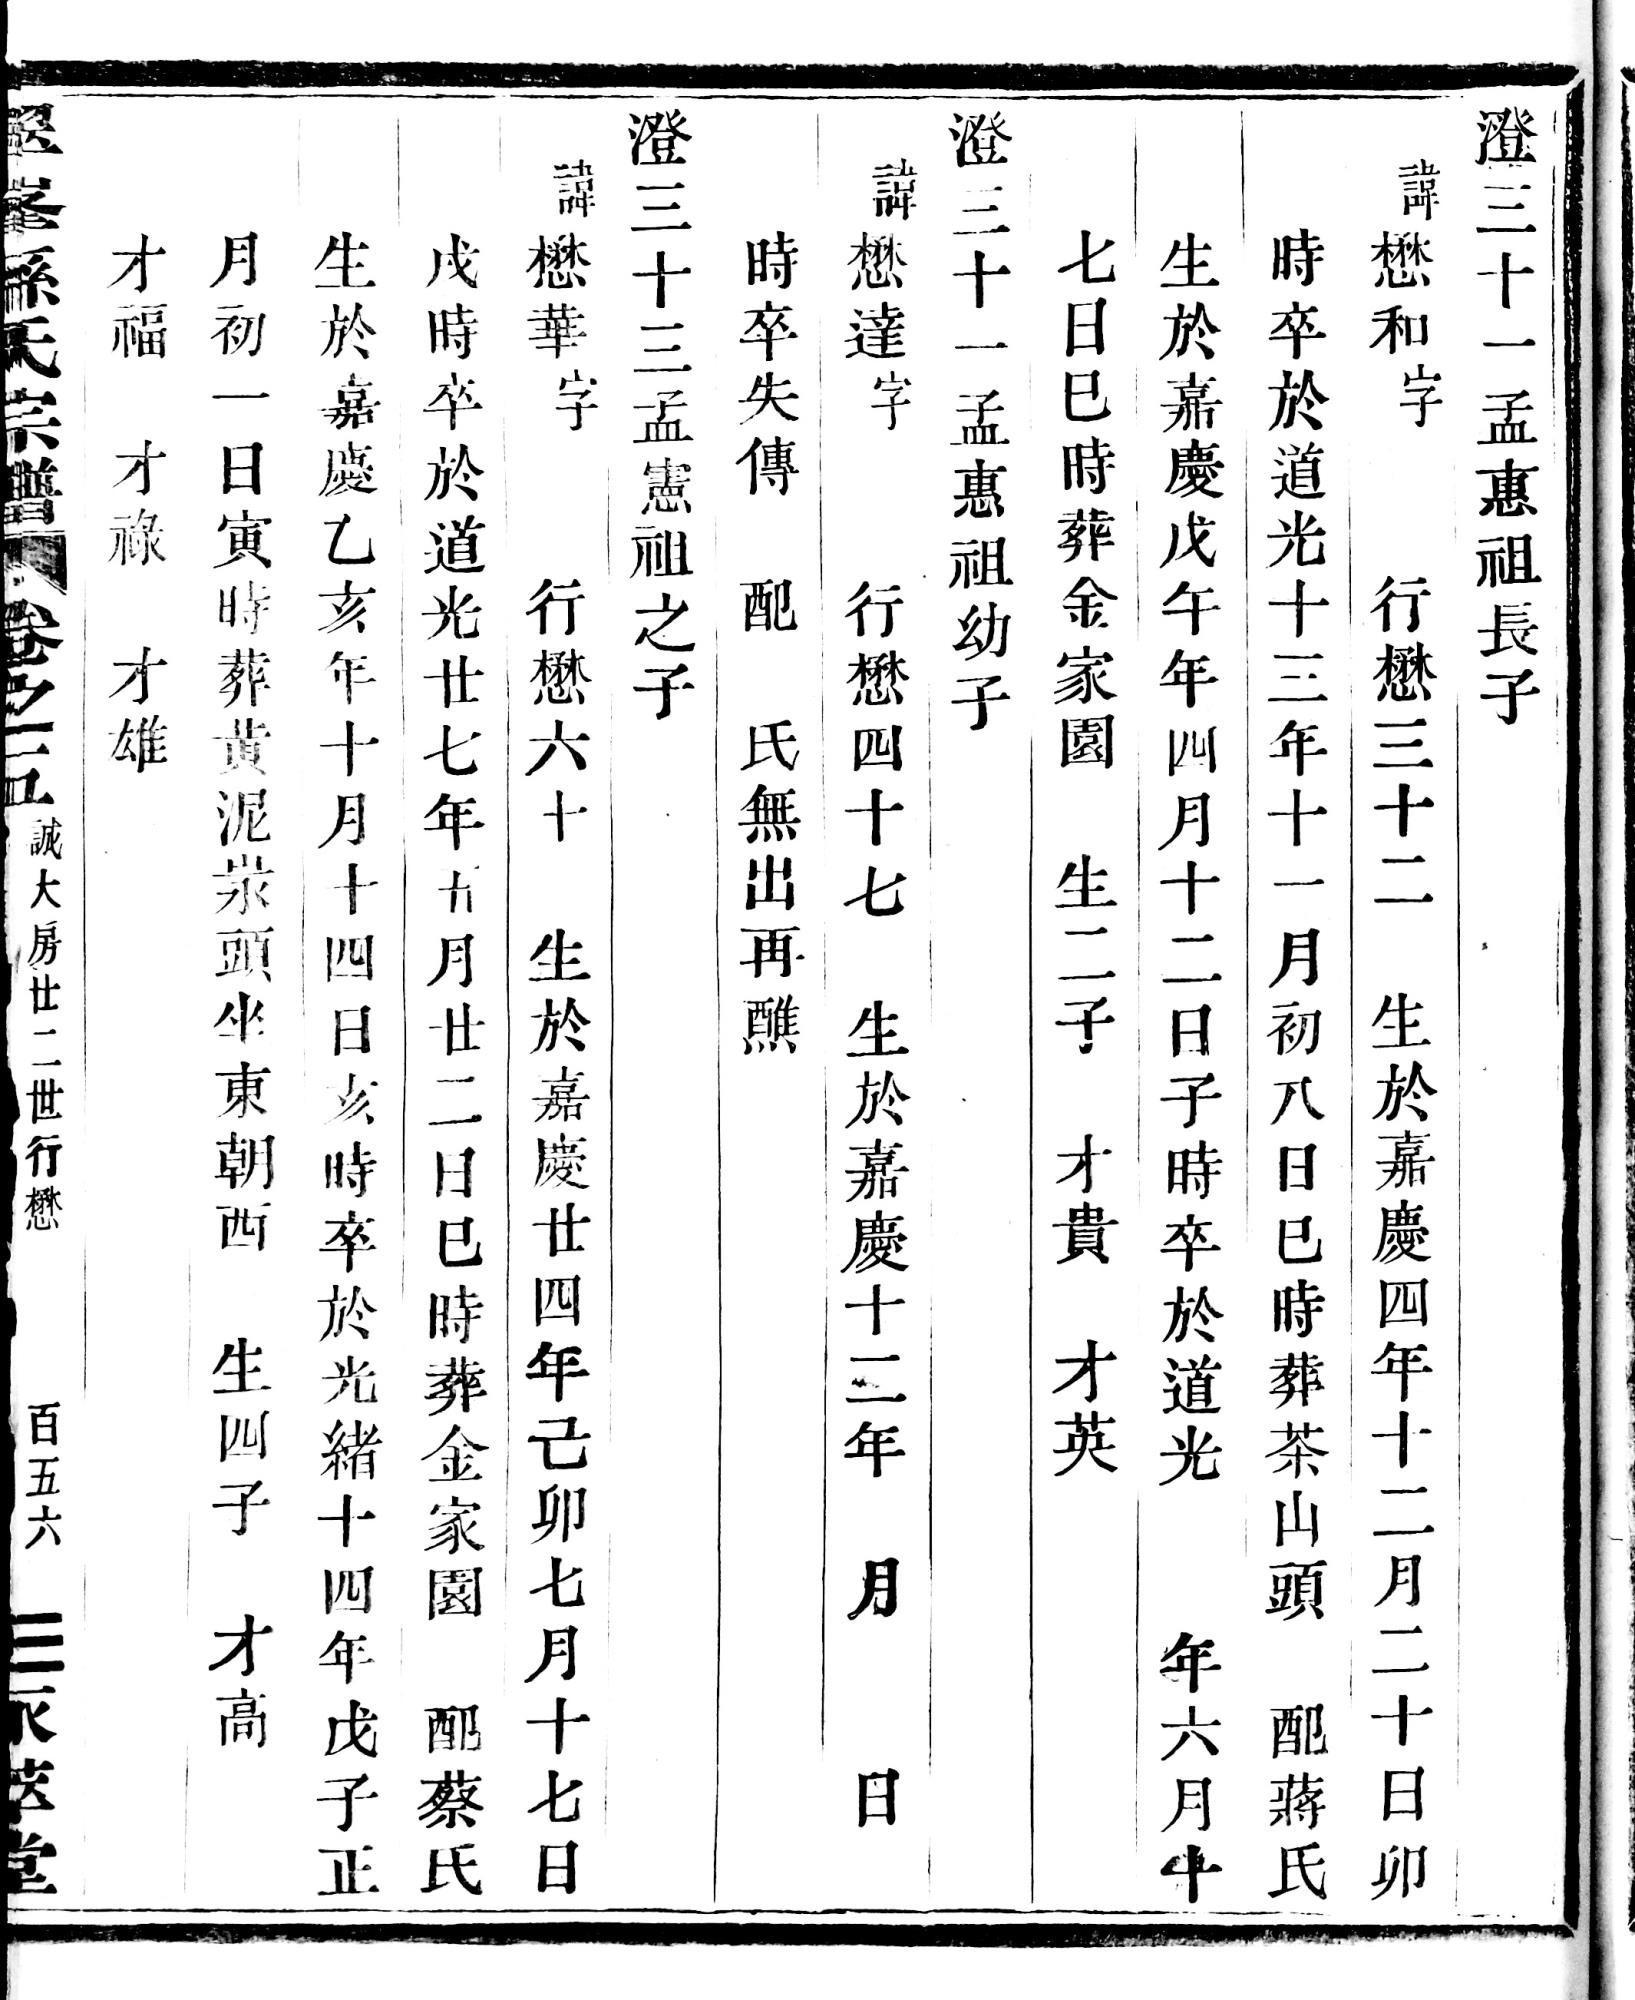 澄三十一孟惠祖長子
諱懋和字 行懋三十二 生於嘉慶四年十二月二十日卯
時卒於道光十三年十一月初八日巳時葬茶山頭 配蔣氏
生於嘉慶戊午年四月十二日子時卒於道光 年六月十
七日巳時葬金家園 生二子 才貴 才英
澄三十一孟惠祖幼子
諱懋達字 行懋四十七 生於嘉慶十二年 月 日
時卒失傳 配 氏無出再醮
澄三十三孟憲祖之子
諱懋華字 行懋六十 生於嘉慶廿四年己卯七月十七日
戌時卒於道光廿七年五月廿二日巳時葬金家園 配蔡氏
生於嘉慶乙亥年十月十四日亥時卒於光緒十四年戊子正
月初一日寅時葬黃泥漿頭坐東朝西 生四子 才高
才福 才祿 才雄
孫氏宗譜 卷之 誠大房廿二世行懋 百五六 萃堂